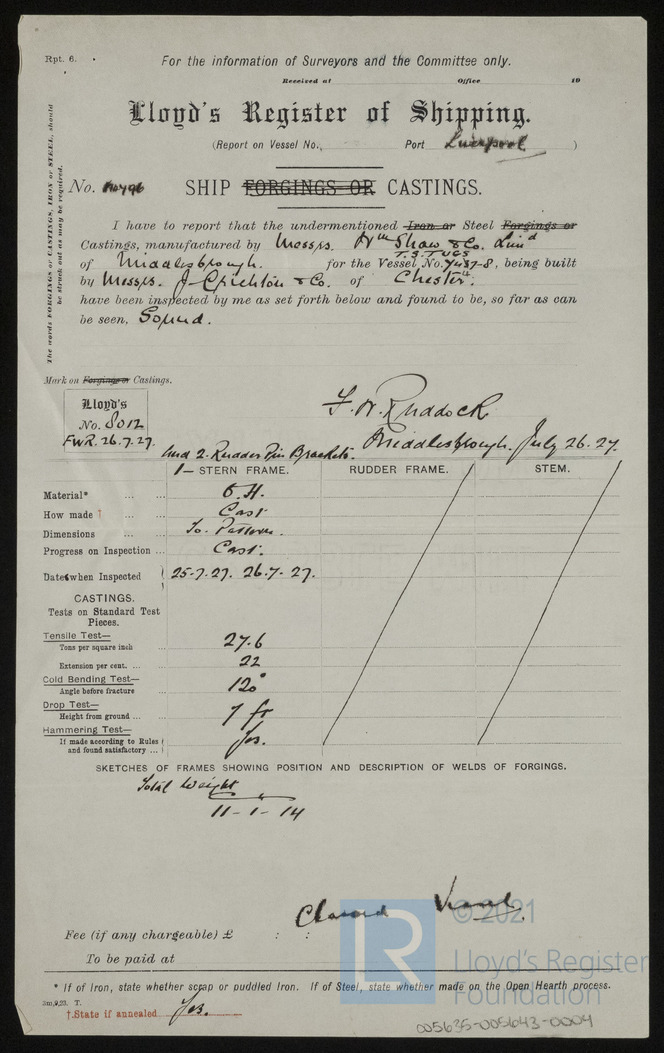 Rpt. 6.
For the information of Surveyors and the Committee only.
Received at Office 19
Lloyd's Register of Shipping.
(Report on Vessel No. Port Liverpool )
The words FORGINGS or CASTINGS, IRON or STEEL, should
be struck out as may be required.
No.
SHIP FORGINGS OR CASTINGS.
I have to report that the undermentioned Iron or Steel Forgings or
Castings, manufactured by Messrs. Wm Shaw & Co. Limd
T.S. TUGS
of Middlesbrough. for the Vessel No. 7437-8, being built
by Messrs. J Crichton & Co. of Chester.
have been inspected by me as set forth below and found to be, so far as can
be seen, Sound.
Mark on Forgings or Castings.
Lloyd's
No. 8012
FWR. 26.7.27.
F. W. Ruddock
Middlesbrough. July 26. 27.
And 2. Rudder Pin Brackets.
1— STERN FRAME. RUDDER FRAME. STEM.
Material* O.H.
How made † Cast
Dimensions To Pattern.
Progress on Inspection Cast.
Dates when Inspected 25-7-27. 26.7-27.
CASTINGS.
Tests on Standard Test
Pieces.
Tensile Test—
Tons per square inch 27.6
Extension per cent. 22
Cold Bending Test—
Angle before fracture 120°
Drop Test—
Height from ground 7 ft
Hammering Test—
If made according to Rules
and found satisfactory Yes.
SKETCHES OF FRAMES SHOWING POSITION AND DESCRIPTION OF WELDS OF FORGINGS.
Total Weight
11-1-14
Classed Vessel.
Fee (if any chargeable) £ : :
To be paid at
* If of Iron, state whether scrap or puddled Iron. If of Steel, state whether made on the Open Hearth process.
3m,9,23. T.
†.State if annealed Yes.
© 2021
Lloyd's Register
Foundation
005635-005643-0004